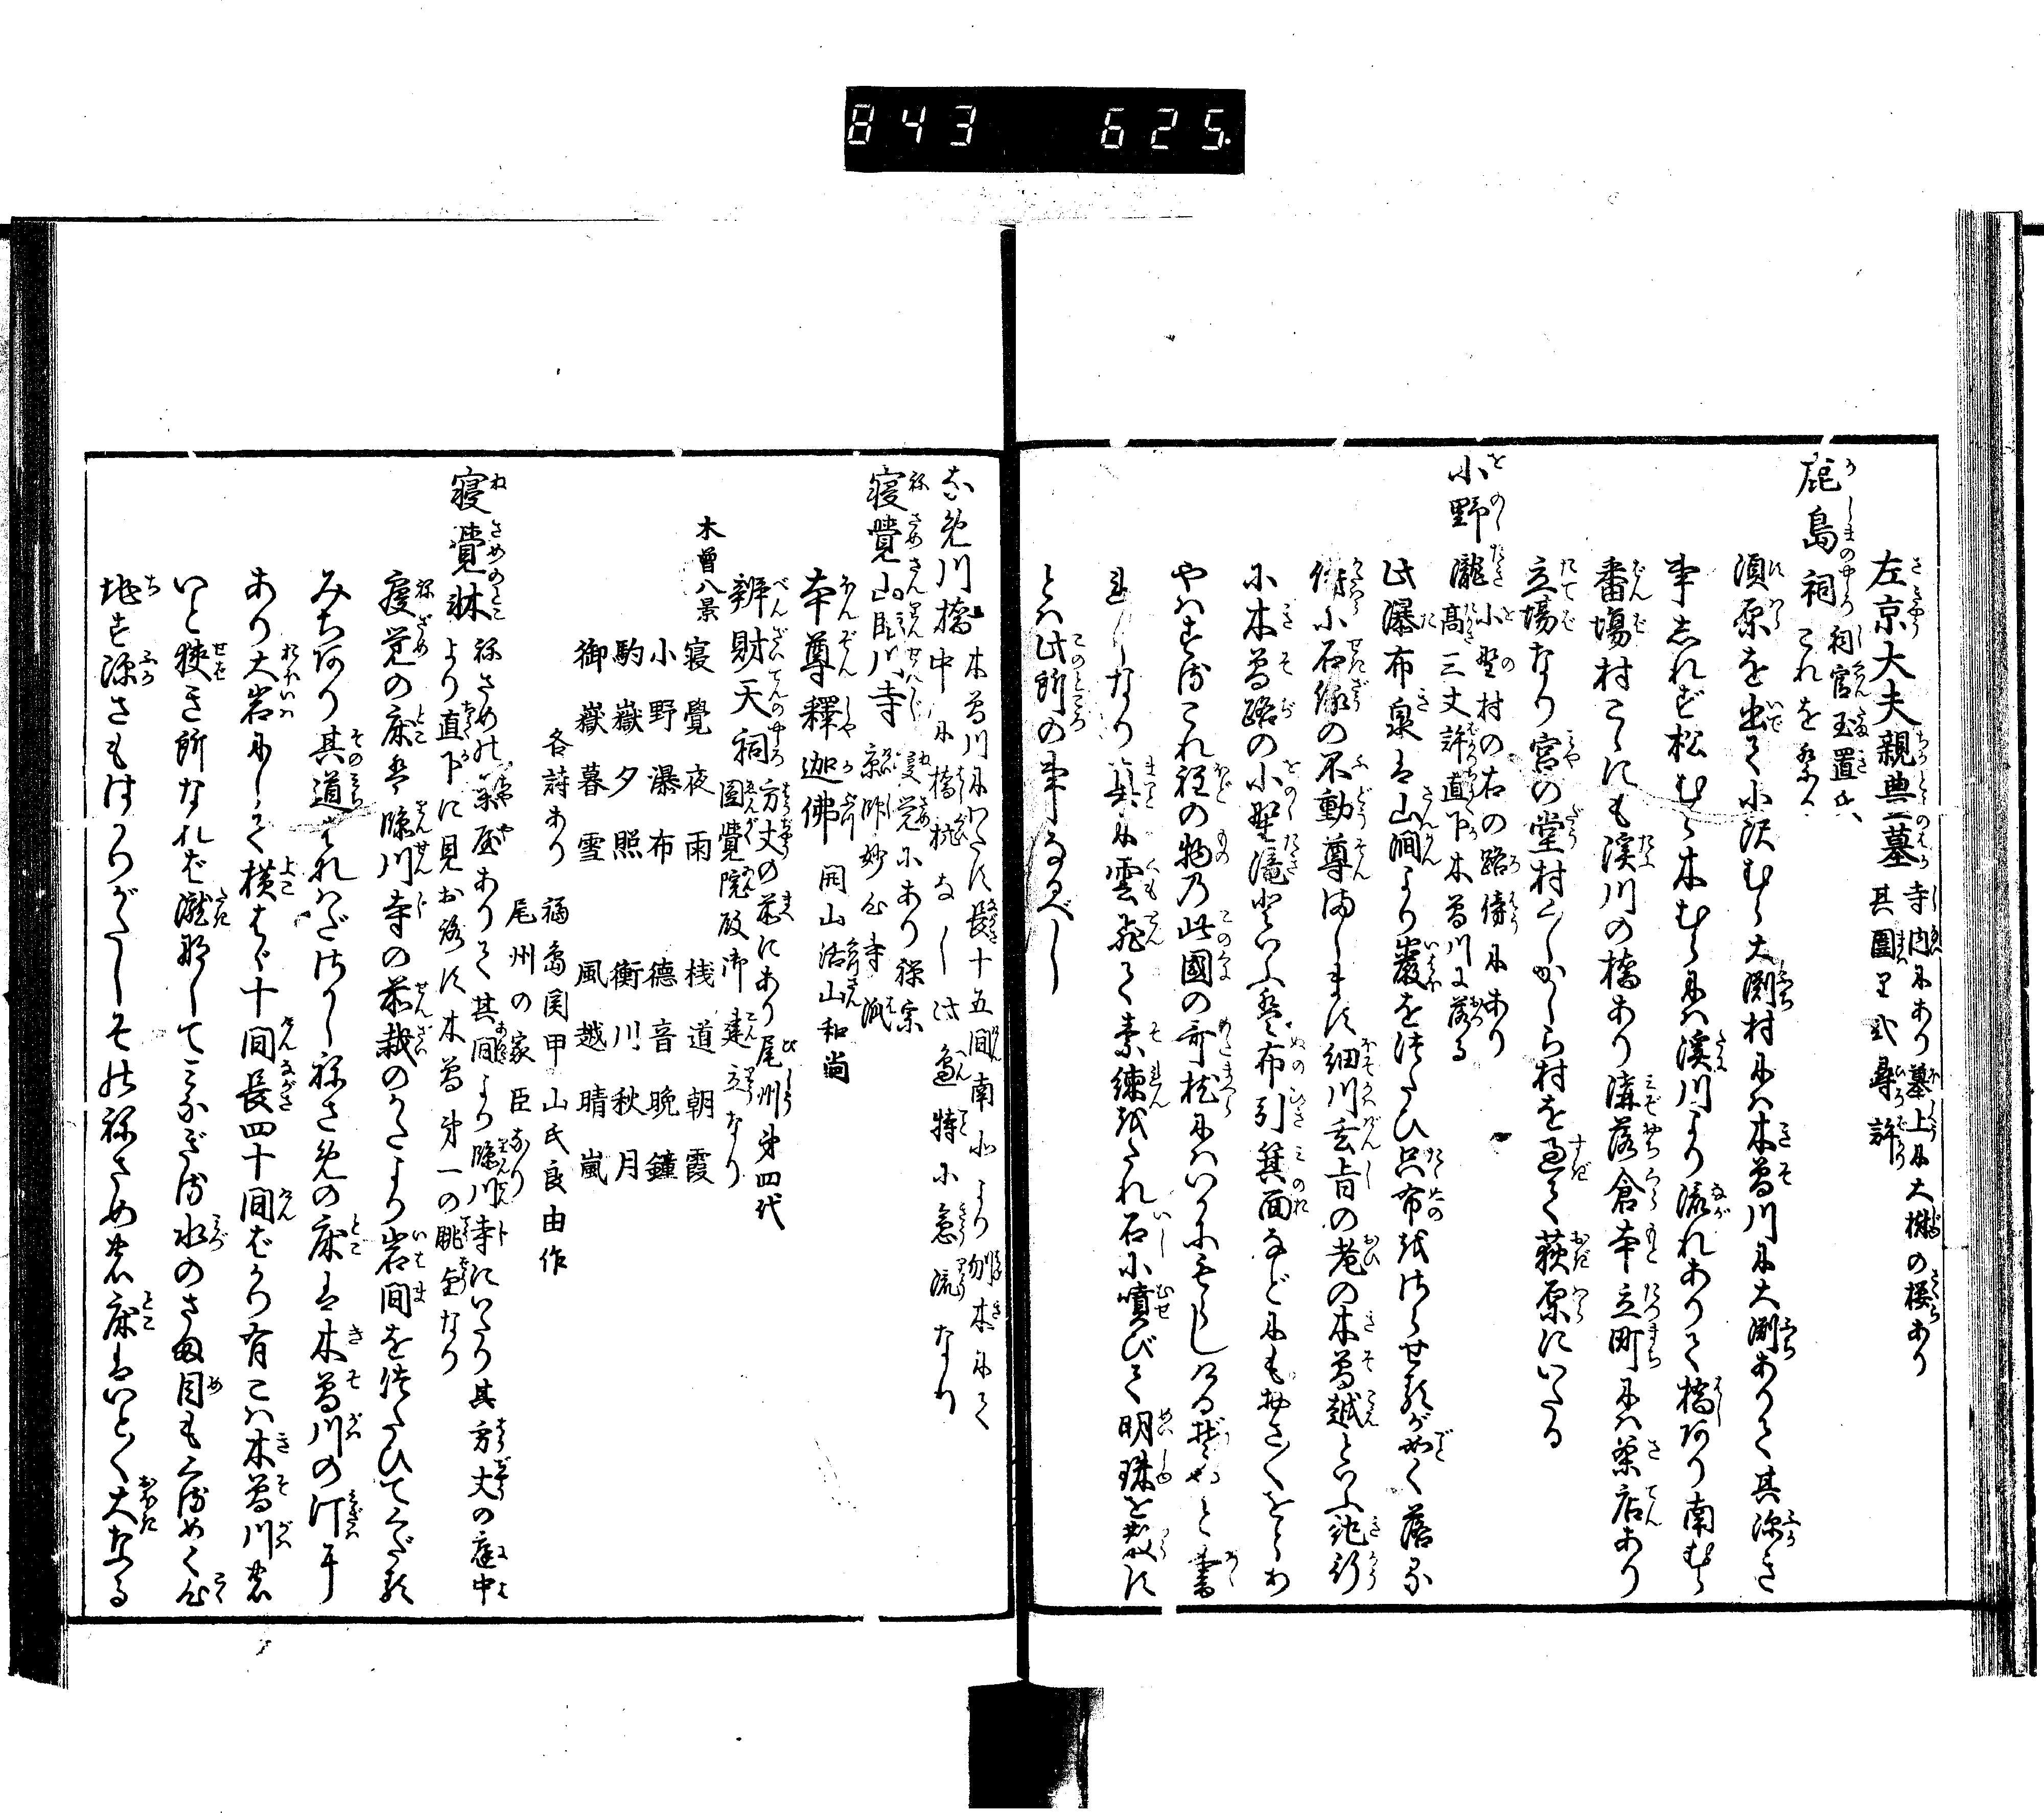 843 625.
左京大夫親典墓 寺内にあり墓上に大樹の桜あり
其圍里弐尋許
鹿島祠 祠官玉置氏
これを祭る
須原を出て小沢むら大渕村には木曽川に大渕ありて其深き
事しれず松むら木むらには溪川より流れありて橋あり南むら
番場村こゝにも溪川の橋あり溝落倉本立町には茶店あり
立場なり宮の堂村くらから村を過て荻原にいたる
小野瀧 小野村の右の路傍にあり
高三丈許直下木曽川に落る
此瀑布泉は山澗より巌をつたひ只布をさらせるが如く落る
傍に石像の不動尊まします細川玄旨の老の木曽越といふ紀行
に木曽路の小野滝といふは布引箕面などにもおさ〱をとら
やはするこれ程の物の此國の哥枕にはいかにもらしけるぞやと書
れしなり眞に雲飛て素練をたれ石に噴びて明珠を散す
とは此所の事なるべし
なめ川橋 木曽川にわたす長十五間南北より刎木にて
中に橋杭なし此邉特に急流なり
寝覺山臨川寺 寝覚にあり禅宗
京師妙心寺派
本尊釋迦佛 開山活山和尚
辨財天祠 方丈の前にあり尾州第四代
圓覺院殿御建立なり
木曽八景
寝覺夜雨 桟道朝霞
小野瀑布 德音晩鐘
駒嶽夕照 衝川秋月
御嶽暮雪 風越晴嵐
各詩あり 福島関甲山氏良由作
尾州の家臣なり
寝覺牀 ねさめの茶屋ありて其間より臨川寺にいたり其方丈の庭中
より直下に見おろす木曽第一の眺望なり
寝覚の床は臨川寺の前栽のかたより岩間をつたひてくだる
みちあり其道されはださがしねさめの床は木曽川の汀に
あり大岩にして横はゞ十間長四十間ばかり有こは木曽川の
いと狭き所なれば瀧なしてみなぎる水のさま目もくるめく心
地す深さもはかりがたしそのねさめの床はいとゞ大なる